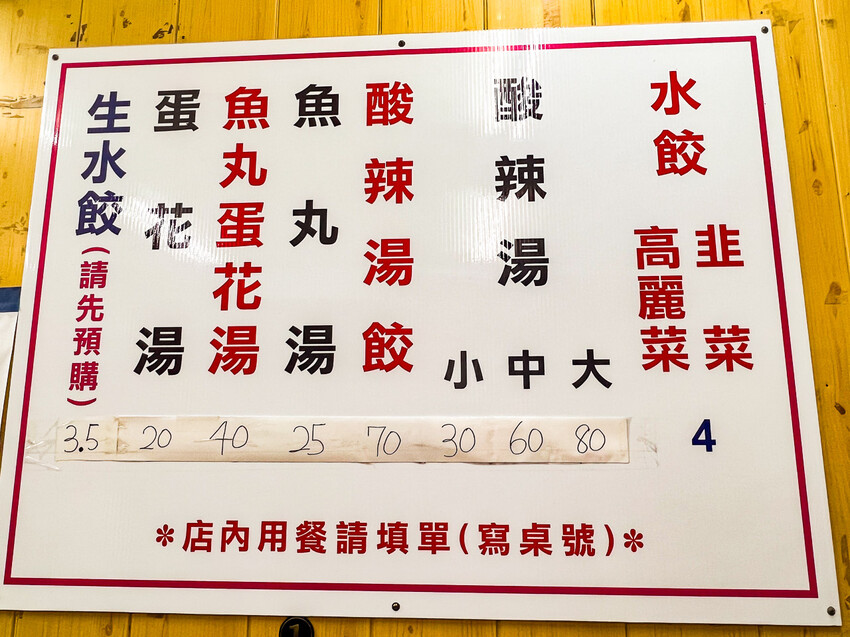 水餃
韭菜
高麗菜
4
酸辣湯
大
中
小
80
60
30
酸辣湯餃
70
魚丸湯
25
魚丸蛋花湯
40
蛋花湯
20
生水餃(請先預購)
3.5
✽店內用餐請填單(寫桌號)✽